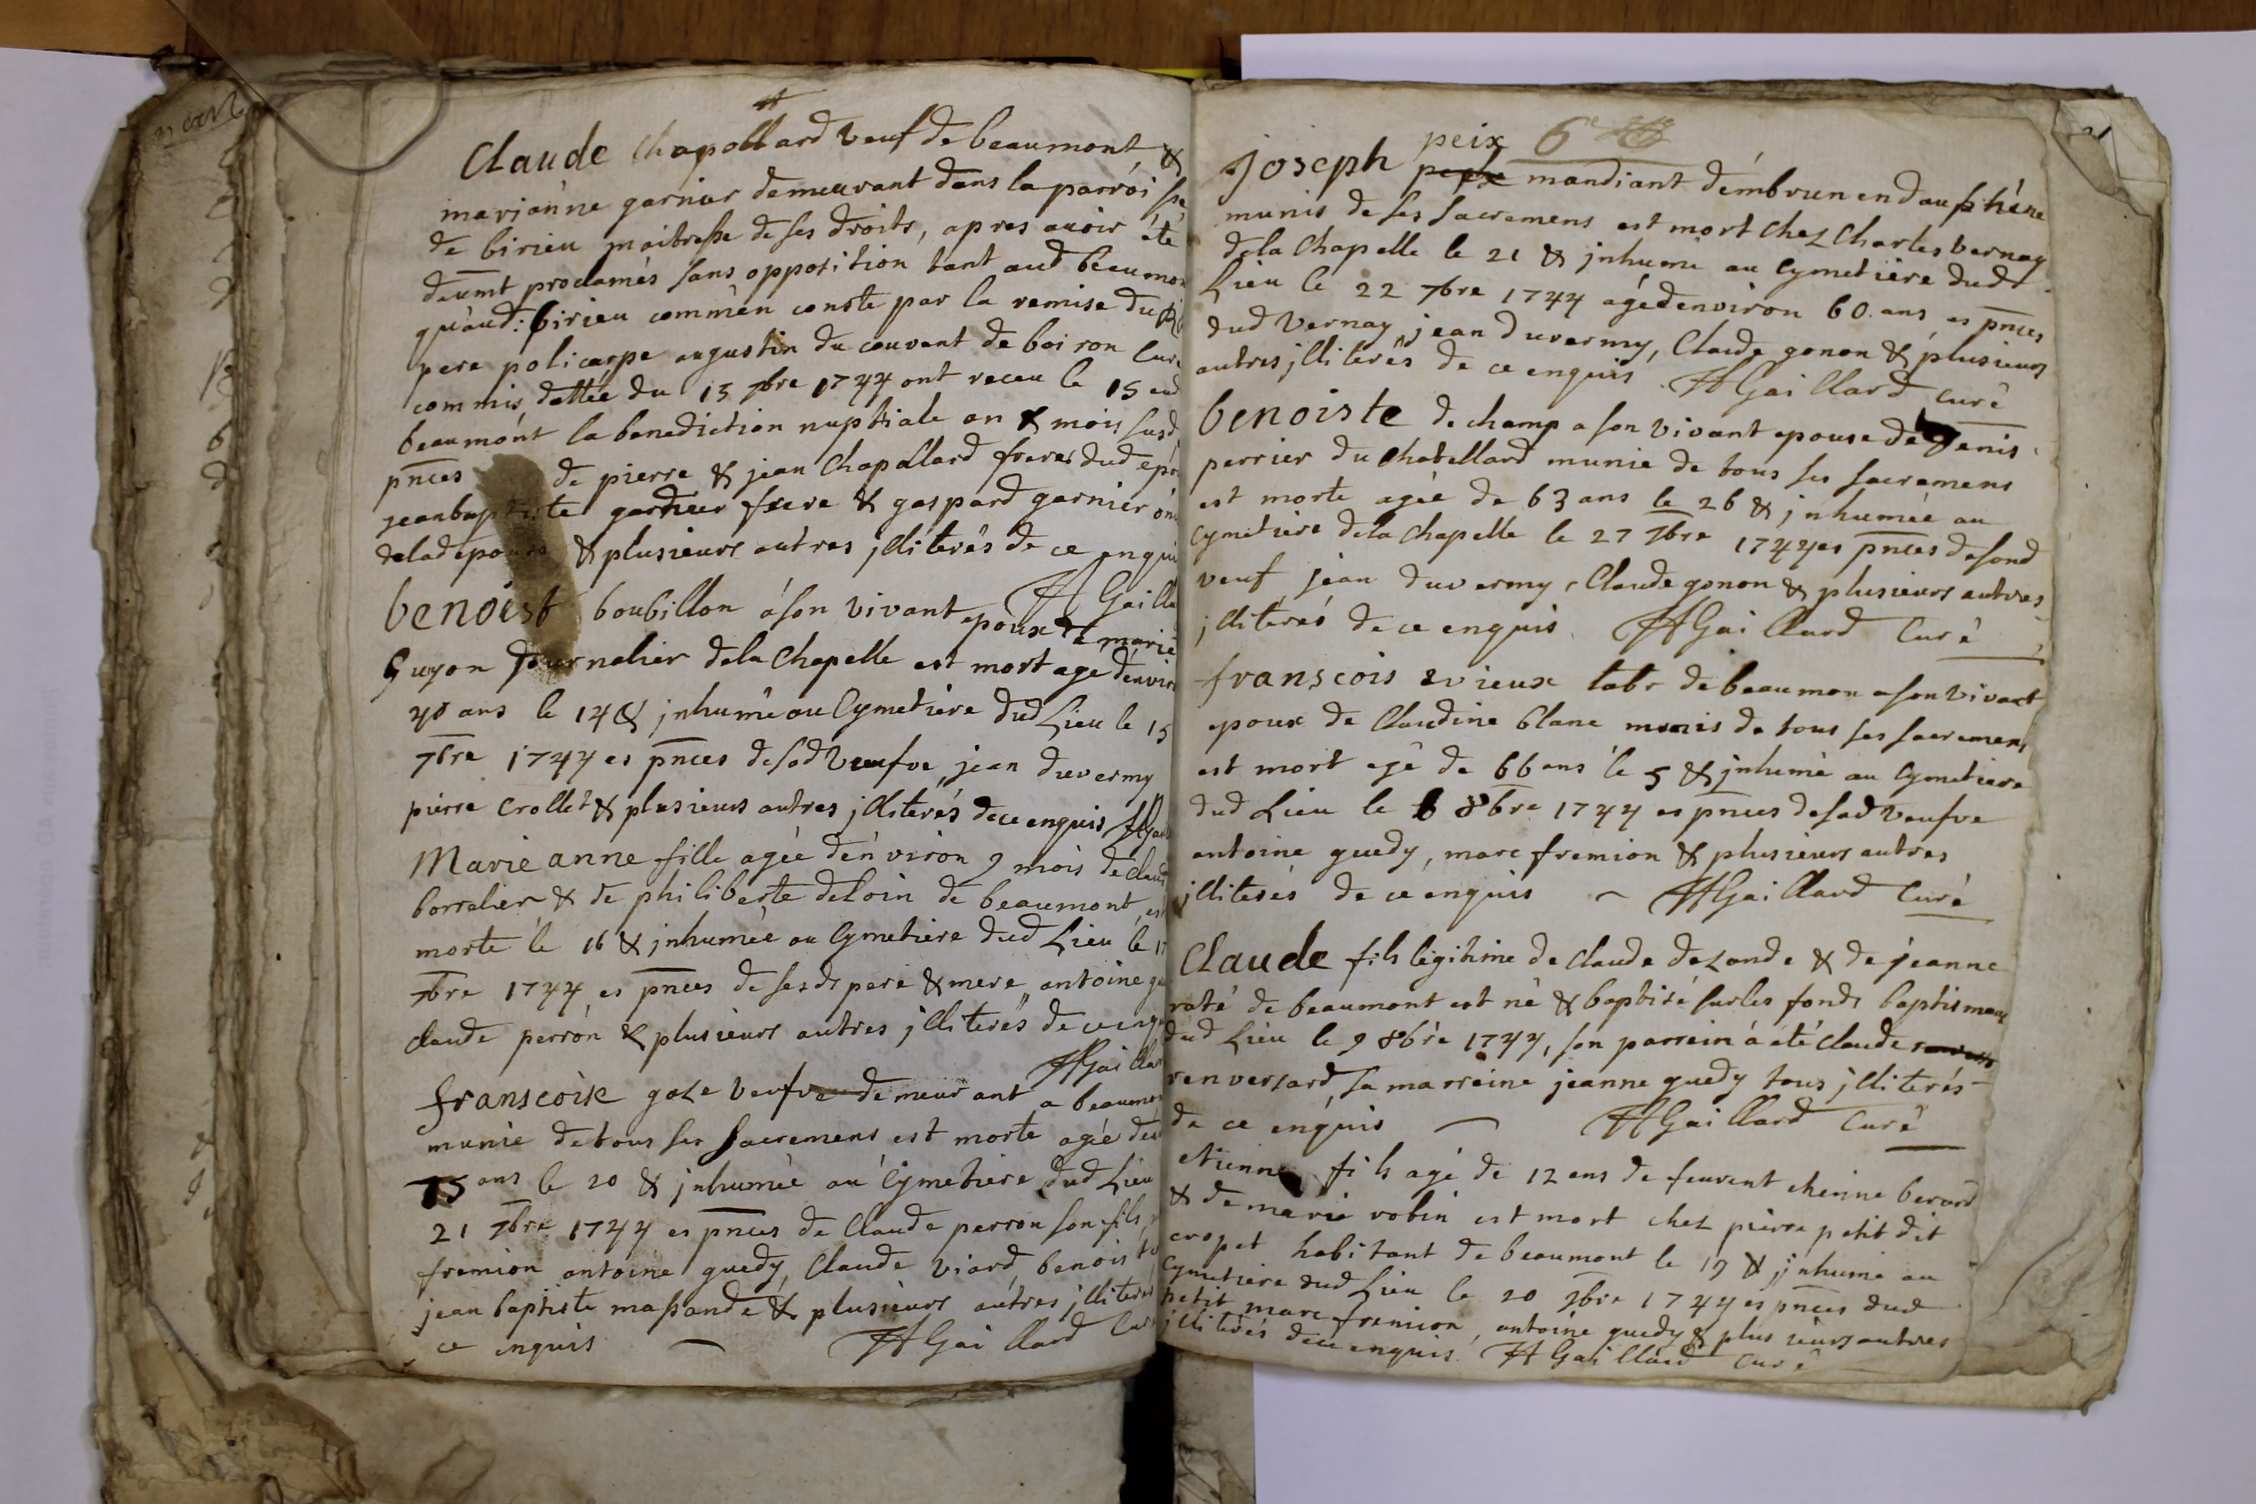 Claude Chapollard veuf de beaumont &
marianne garnier demeurant dans la parroisse
de birieu maitresse de ses droits, apres avoir été
deumt proclamés sans opposition tant aud beaumon
qu'aud: birieu comm'en conste par la remise du R
pere policarpe augustin du couvent de boiron curé
commis, dattée du 13 7bre 1744 ont receu le 15 aud
beaumont la benediction nuptiale an & mois susd
pnces de pierre & jean Chapollard freres dud epo
jean baptiste garnier frere & gaspard garnier on
delad epouse & plusieurs autres jlliterés de ce enqui
H Gailla
benoist boubillon a son vivant epoux de marie
Guyon journalier dela Chapelle est mort agé denvir
40 ans le 14 & jnhumé au Cymetiere dud Lieu le 15
7bre 1744 es pnces de sad veufve, jean duvermy
pierre crollet & plusieurs autres jlliterés de ce enquis HGa
Marie anne fille agée d'environ 9 mois de claud
borralier & de philiberte deloin de beaumont est
morte le 16 & jnhumée au Cymetiere dud Lieu le 17
7bre 1744 es pnces de sesds pere & mere, antoine gu
claude perron & plusieurs autres jlliterés de ce enqu
HGaillar
franscoise goze veufve demeurant a beaumon
munie de tous ses sacremens est morte agée de
75 ans le 20 & jnhumée au Cymetiere dud Lieu
21 7bre 1744 es pnces de Claude perron son fils,
fremion antoine guedy, Claude viard, benois to
jean baptiste massande & plusieurs autres jlliterés
ce enquis HGaillard Cur
6e
peix
joseph mandiant d'émbrun en dauphéné
munis de ses sacremens est mort chez Charles vernay
dela Chapelle le 21 & jnhumé au Cymetière dud
Lieu le 22 7bre 1744 agé denviron 60 ans es pnces
dud vernay, jean duvermy, Claude gonon & plusieurs
autres jlliterés de ce enquis HGaillard curé
benoiste dechamp a son vivant epouse de denis
perrier du chatellard munie de tous ses sacremens
est morte agée de 63 ans le 26 & jnhumée au
Cymetiere dela Chapelle le 27 7bre 1744 es pnces de sond
veuf, jean duvermy, Claude gonon & plusieurs autres
jlliterés de ce enquis HGaillard Curé
franscois evieux labr de beaumon a son vivant
epoux de Claudine blanc munis de tous ses sacremens
est mort agé de 66 ans le 5 & jnhumé au Cymetiere
dud Lieu le 6 8bre 1744 es pnces de sad veufve
antoine guedy, marc fremion & plusieurs autres
jlliterés de ce enquis HGaillard Curé
Claude fils légitime de claude delande & de jeanne
raté de beaumont est né & baptisé sur les fonds baptismaux
dud Lieu le 9 8bre 1744, son parrein a été claude
renversard, sa marreine jeanne guedy tous jlliterés
de ce enquis HGaillard Curé
etienne fils agé de 12 ans de etienne berard
& de marie robin est mort chez pierre petit dit
cropet habitant de beaumont le 19 & jnhumé au
Cymetiere dud Lieu le 20 1744 es pnces dud
petit marc fremion, antoine guedy & plusieurs autres
jlliterés de ce enquis. HGaillard Curé